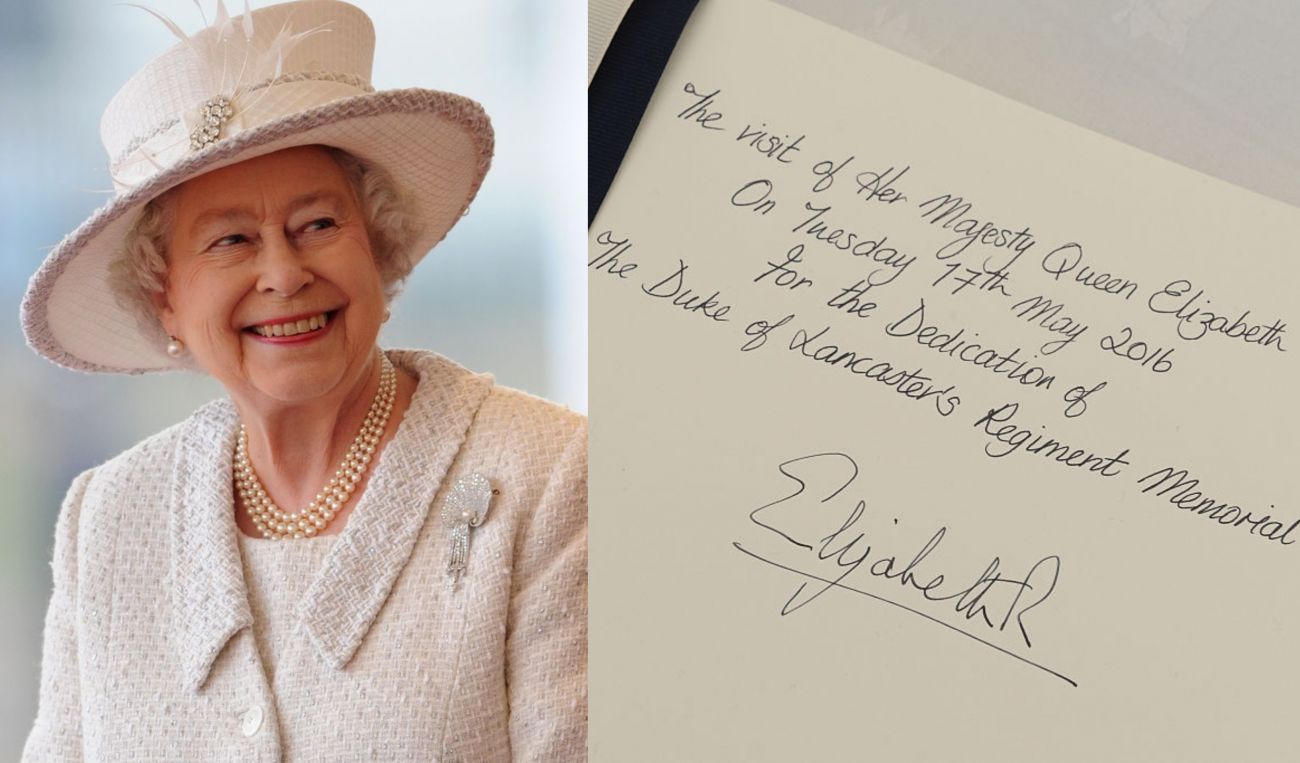 The visit of Her Majesty Queen Elizabeth
On Tuesday 17th May 2016
For the Dedication of
The Duke of Lancaster's Regiment Memorial
Elizabeth R